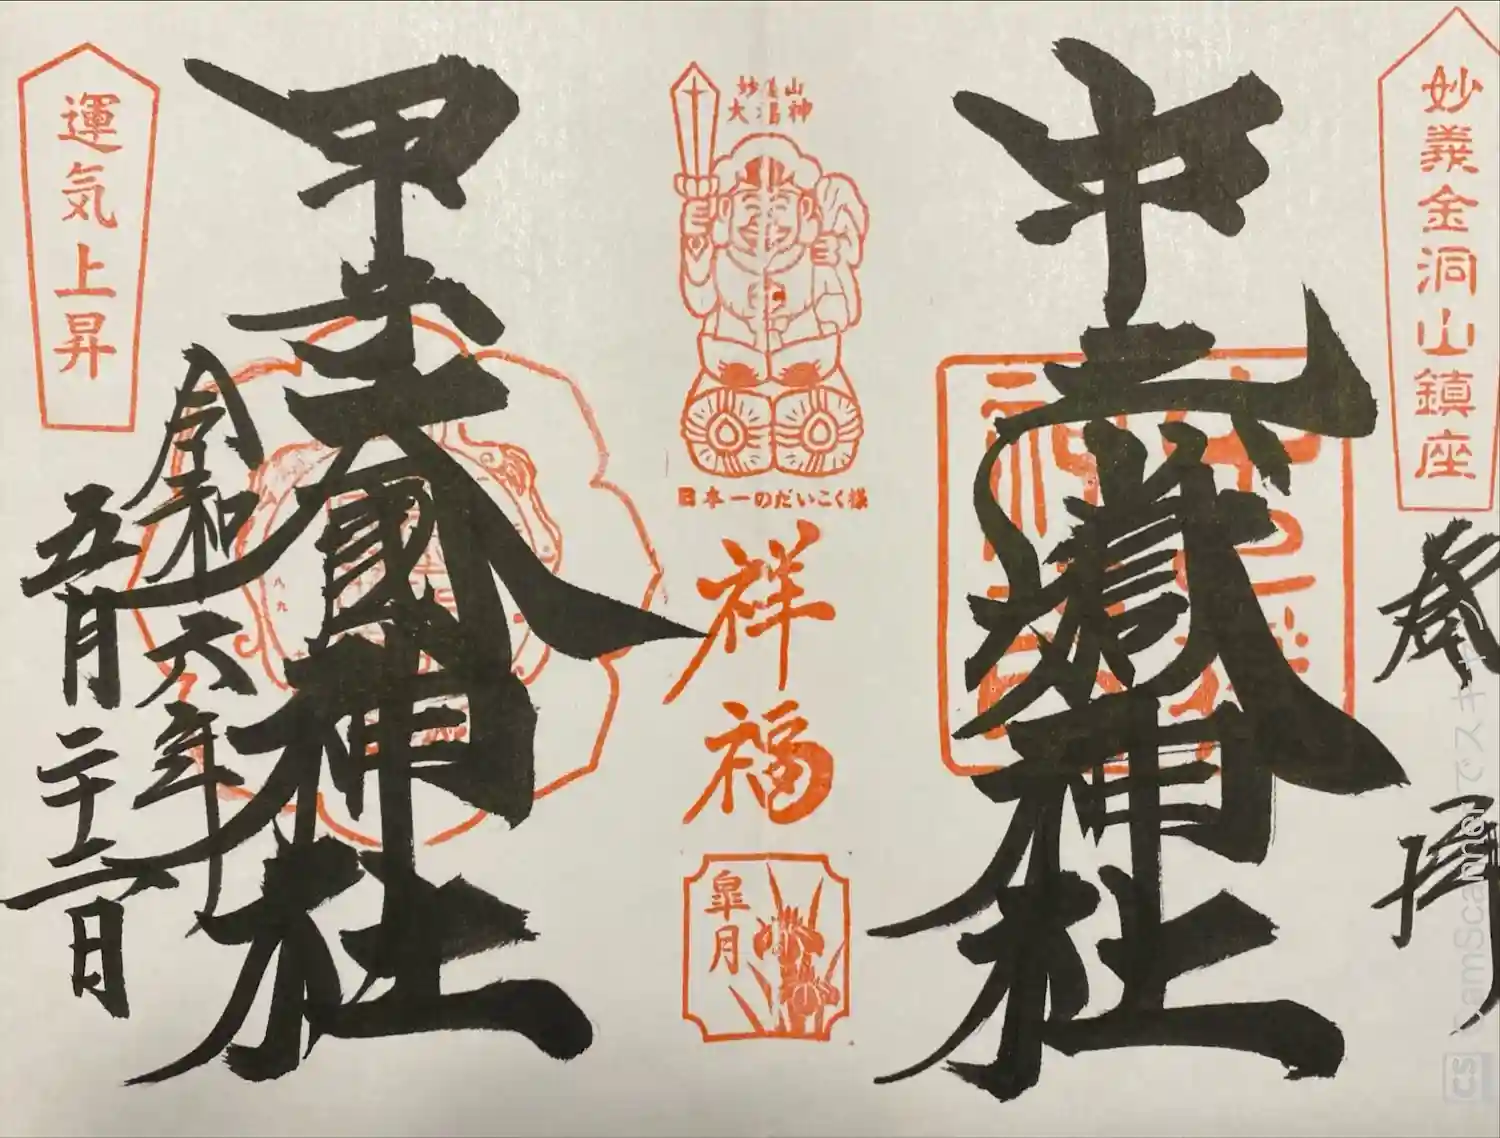 妙義金洞山鎮座
奉拝
中之嶽神社
日本一のだいこく様
祥福
皐月
甲子大國神社
運気上昇
令和六年
五月二十二日
CamScannerでスキャン
CS